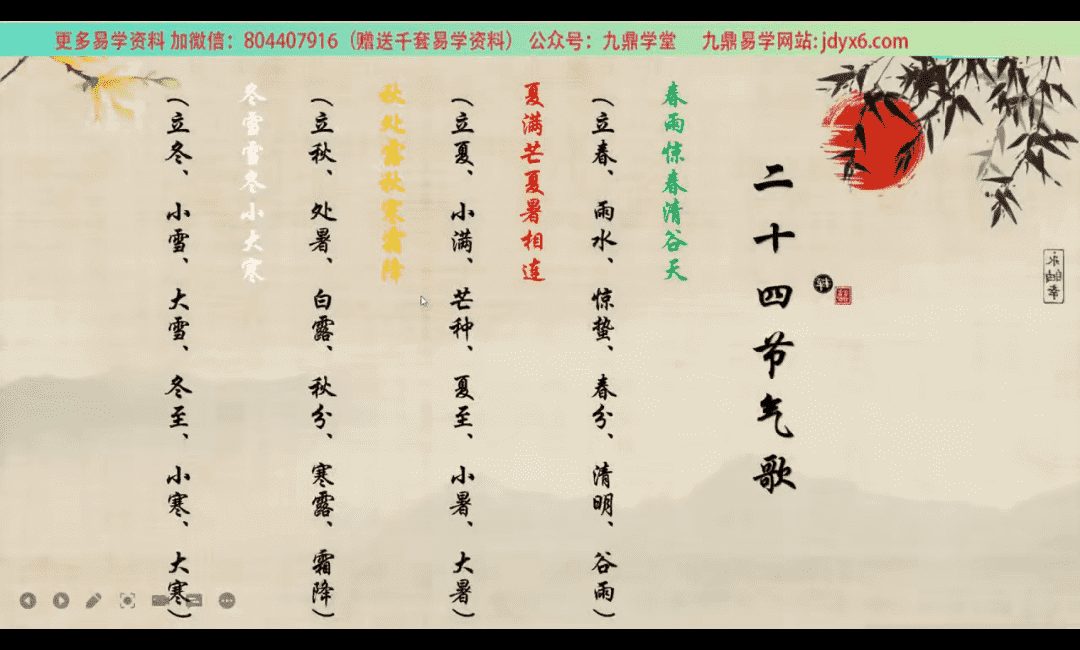 更多易学资料 加微信：804407916（赠送千套易学资料） 公众号：九鼎学堂 九鼎易学网站:jdyx6.com
二十四节气歌
春雨惊春清谷天
（立春、雨水、惊蛰、春分、清明、谷雨）
夏满芒夏暑相连
（立夏、小满、芒种、夏至、小暑、大暑）
秋处露秋寒霜降
（立秋、处暑、白露、秋分、寒露、霜降）
冬雪雪冬小大寒
（立冬、小雪、大雪、冬至、小寒、大寒）